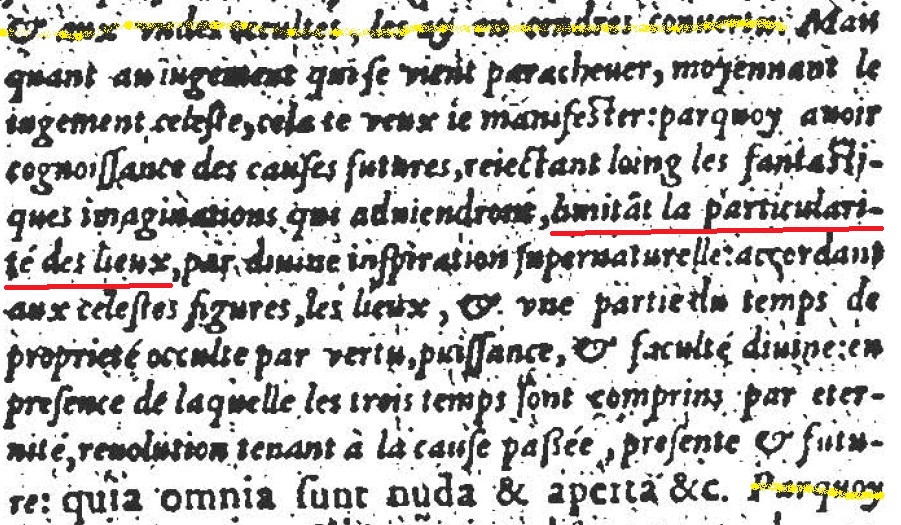 & aux       les            Mais
quant au iugement qui se vient paracheuer, moyennant le
iugement celeste, cela te veux ie manifester: parquoy auoir
cognoissance des causes futures, reiectant loing les fantasti-
ques imaginations qui aduiendront, limitãt la particulari-
té des lieux, par diuine inspiration supernaturelle: accordant
aux celestes figures, les lieux, & vne partie du temps de
proprieté occulte par vertu, puissance, & faculté diuine: en
presence de laquelle les trois temps sont comprins par eter-
nité, reuolution tenant à la cause passée, presente & futu-
re: quia omnia sunt nuda & aperta &c. Parquoy